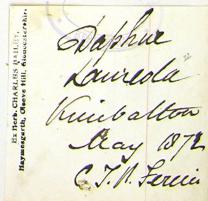 Ex Herb. CHARLES BAILEY,
Haymesgarth, Cleeve Hill, Gloucestershire.
Daphne
Laureola
Kimbolton
May 1872